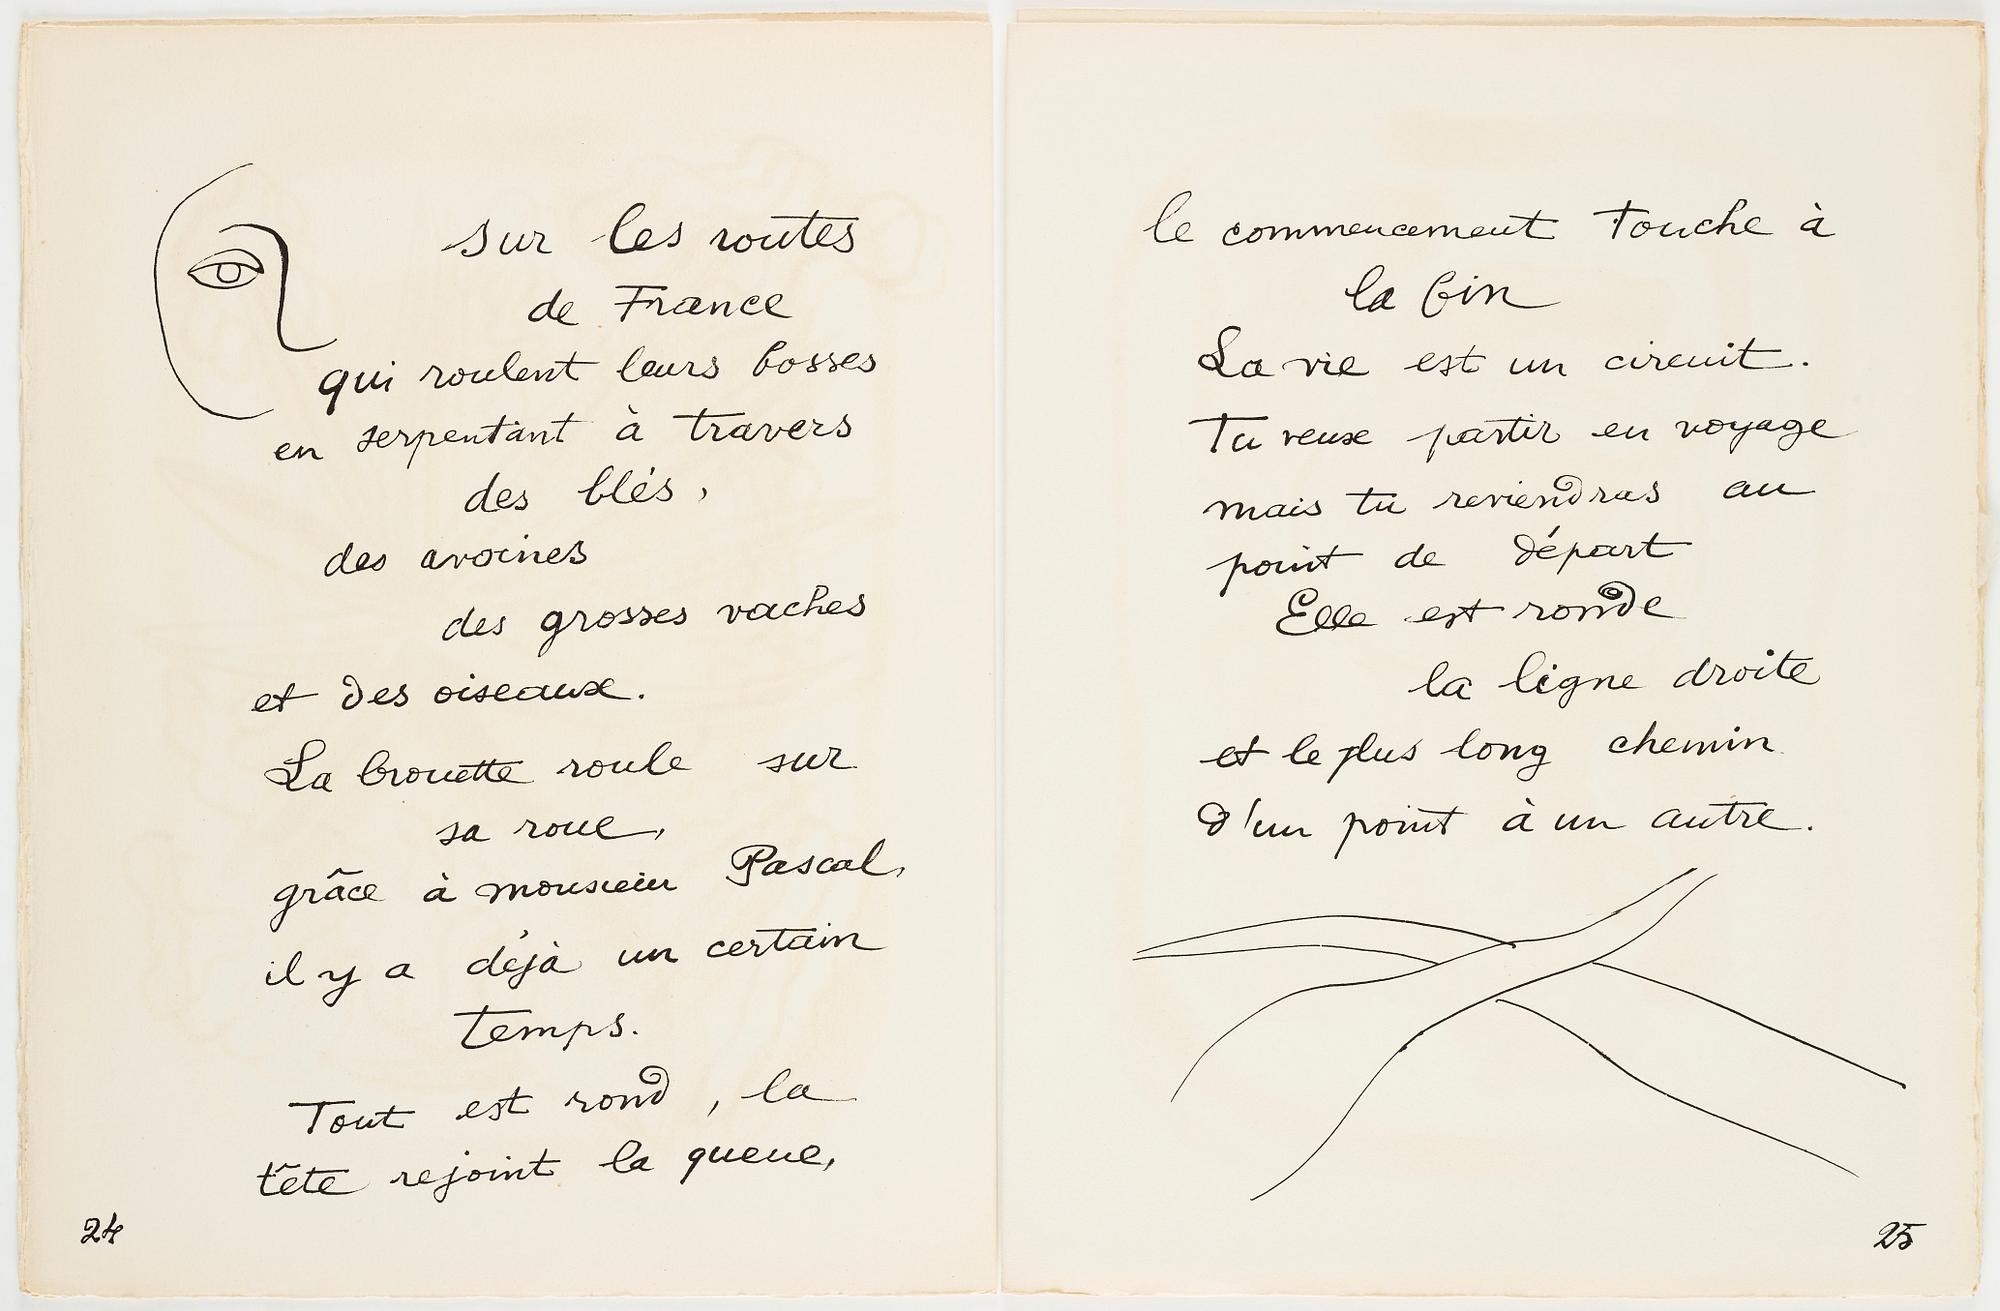 sur les routes
de France
qui roulent leurs bosses
en serpentant à travers
des blés,
des avoines
des grosses vaches
et des oiseaux.
La brouette roule sur
sa roue,
grâce à monsieur Pascal,
il y a déjà un certain
temps.
Tout est rond, la
tête rejoint la queue,
24
le commencement touche à
la fin
La vie est un circuit.
Tu veux partir en voyage
mais tu reviendras au
point de départ
Elle est ronde
la ligne droite
et le plus long chemin
d'un point à un autre.
25